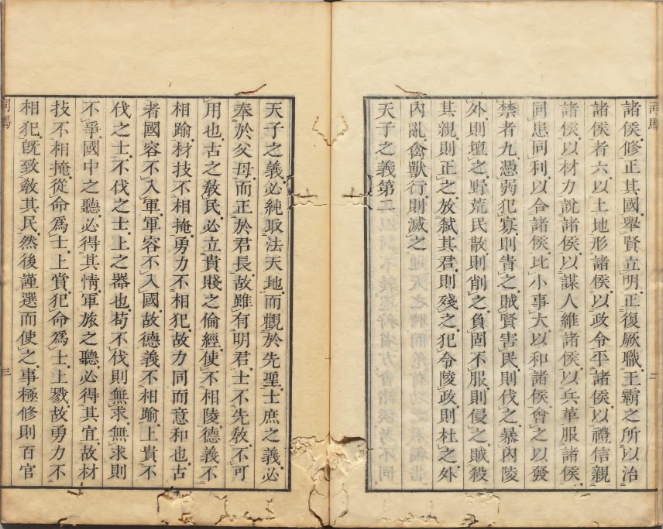 諸侯修正其國舉賢立明正復厥職王霸之所以治
諸侯者六以土地形諸侯以政令平諸侯以禮信親
諸侯以材力說諸侯以謀人維諸侯以兵革服諸侯
同患同利以合諸侯比小事大以和諸侯會之以發
禁者九憑弱犯寡則眚之賊賢害民則伐之暴內陵
外則壇之野荒民散則削之負固不服則侵之賊殺
其親則正之放弒其君則殘之犯令陵政則杜之外
內亂禽獸行則滅之
天子之義第二
天子之義必純取法天地而觀於先聖士庶之義必
奉於父母而正於君長故雖有明君士不先敎不可
用也古之敎民必立貴賤之倫經使不相陵德義不
相踰材技不相掩勇力不相犯故力同而意和也古
者國容不入軍軍容不入國故德義不相踰上貴不
伐之士不伐之士上之器也苟不伐則無求無求則
不爭國中之聽必得其情軍旅之聽必得其宜故材
技不相掩從命爲士上賞犯命爲士上戮故勇力不
相犯旣致敎其民然後謹選而使之事極修則百官
三